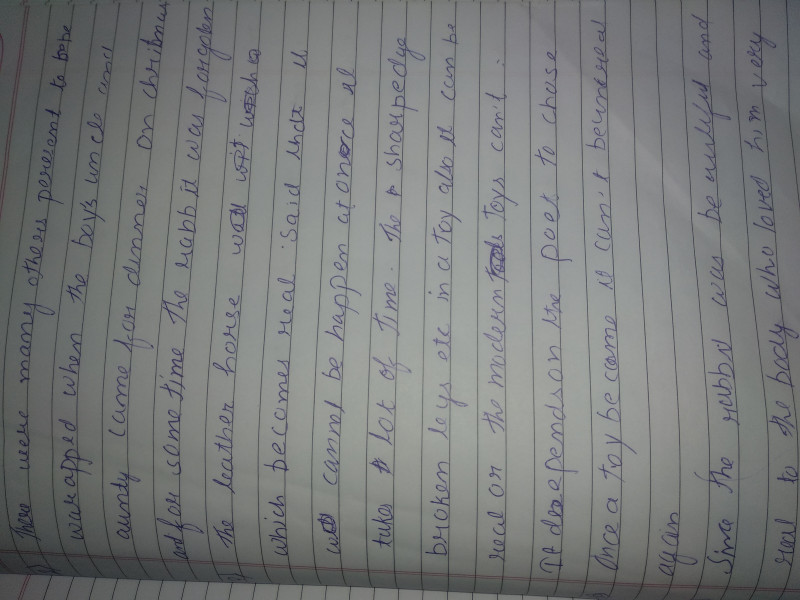 There were many others peresent to bepe
warapped when the boys uncle and
aunty came for dinner on christmas
and for some time the rabbit was forgoten
The leather horse
which becomes real said that it
cannot be happen at once it
takes lot of time. The sharpedge
broken legs etc in a toy also it can be
real or the modern toys can't.
It dependson the poet to chose
Once a toy become it can't beunereal
again
Since the rabbit was be and
real to the body who loved him very